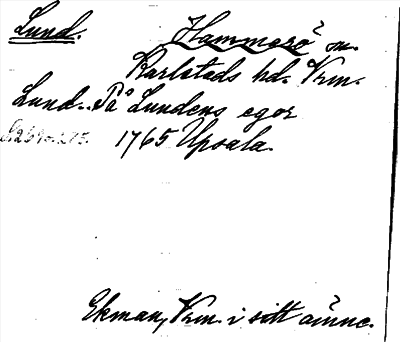 Lund. Hammarö sn.
Karlstads hd. Vrm.
Lund. På Lundens egor
1765 Upsala.
Ekman, Vrm. i sitt ämne.